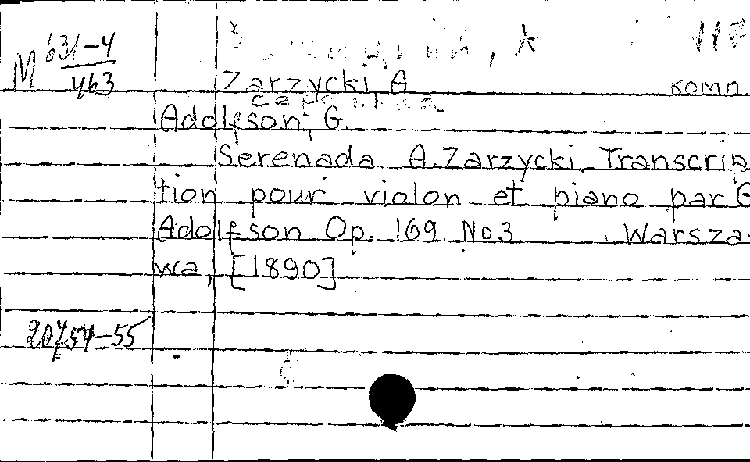 М 631-4
463
Zarzycki A
комп.
Adolfson, G.
Serenada A. Zarzycki. Transcrip
tion pour violon et piano par G
Adolfson Op. 169 No.3 Warsza-
wa, [1890]
20754-55